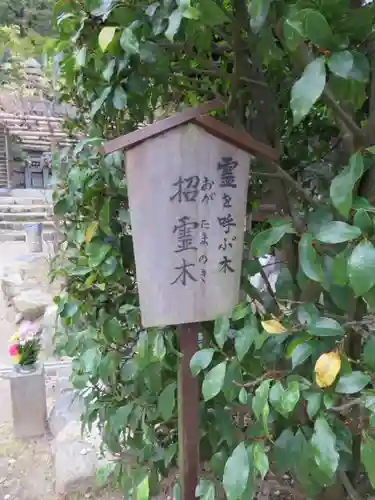 霊を呼ぶ木
招霊木
おが たまのき